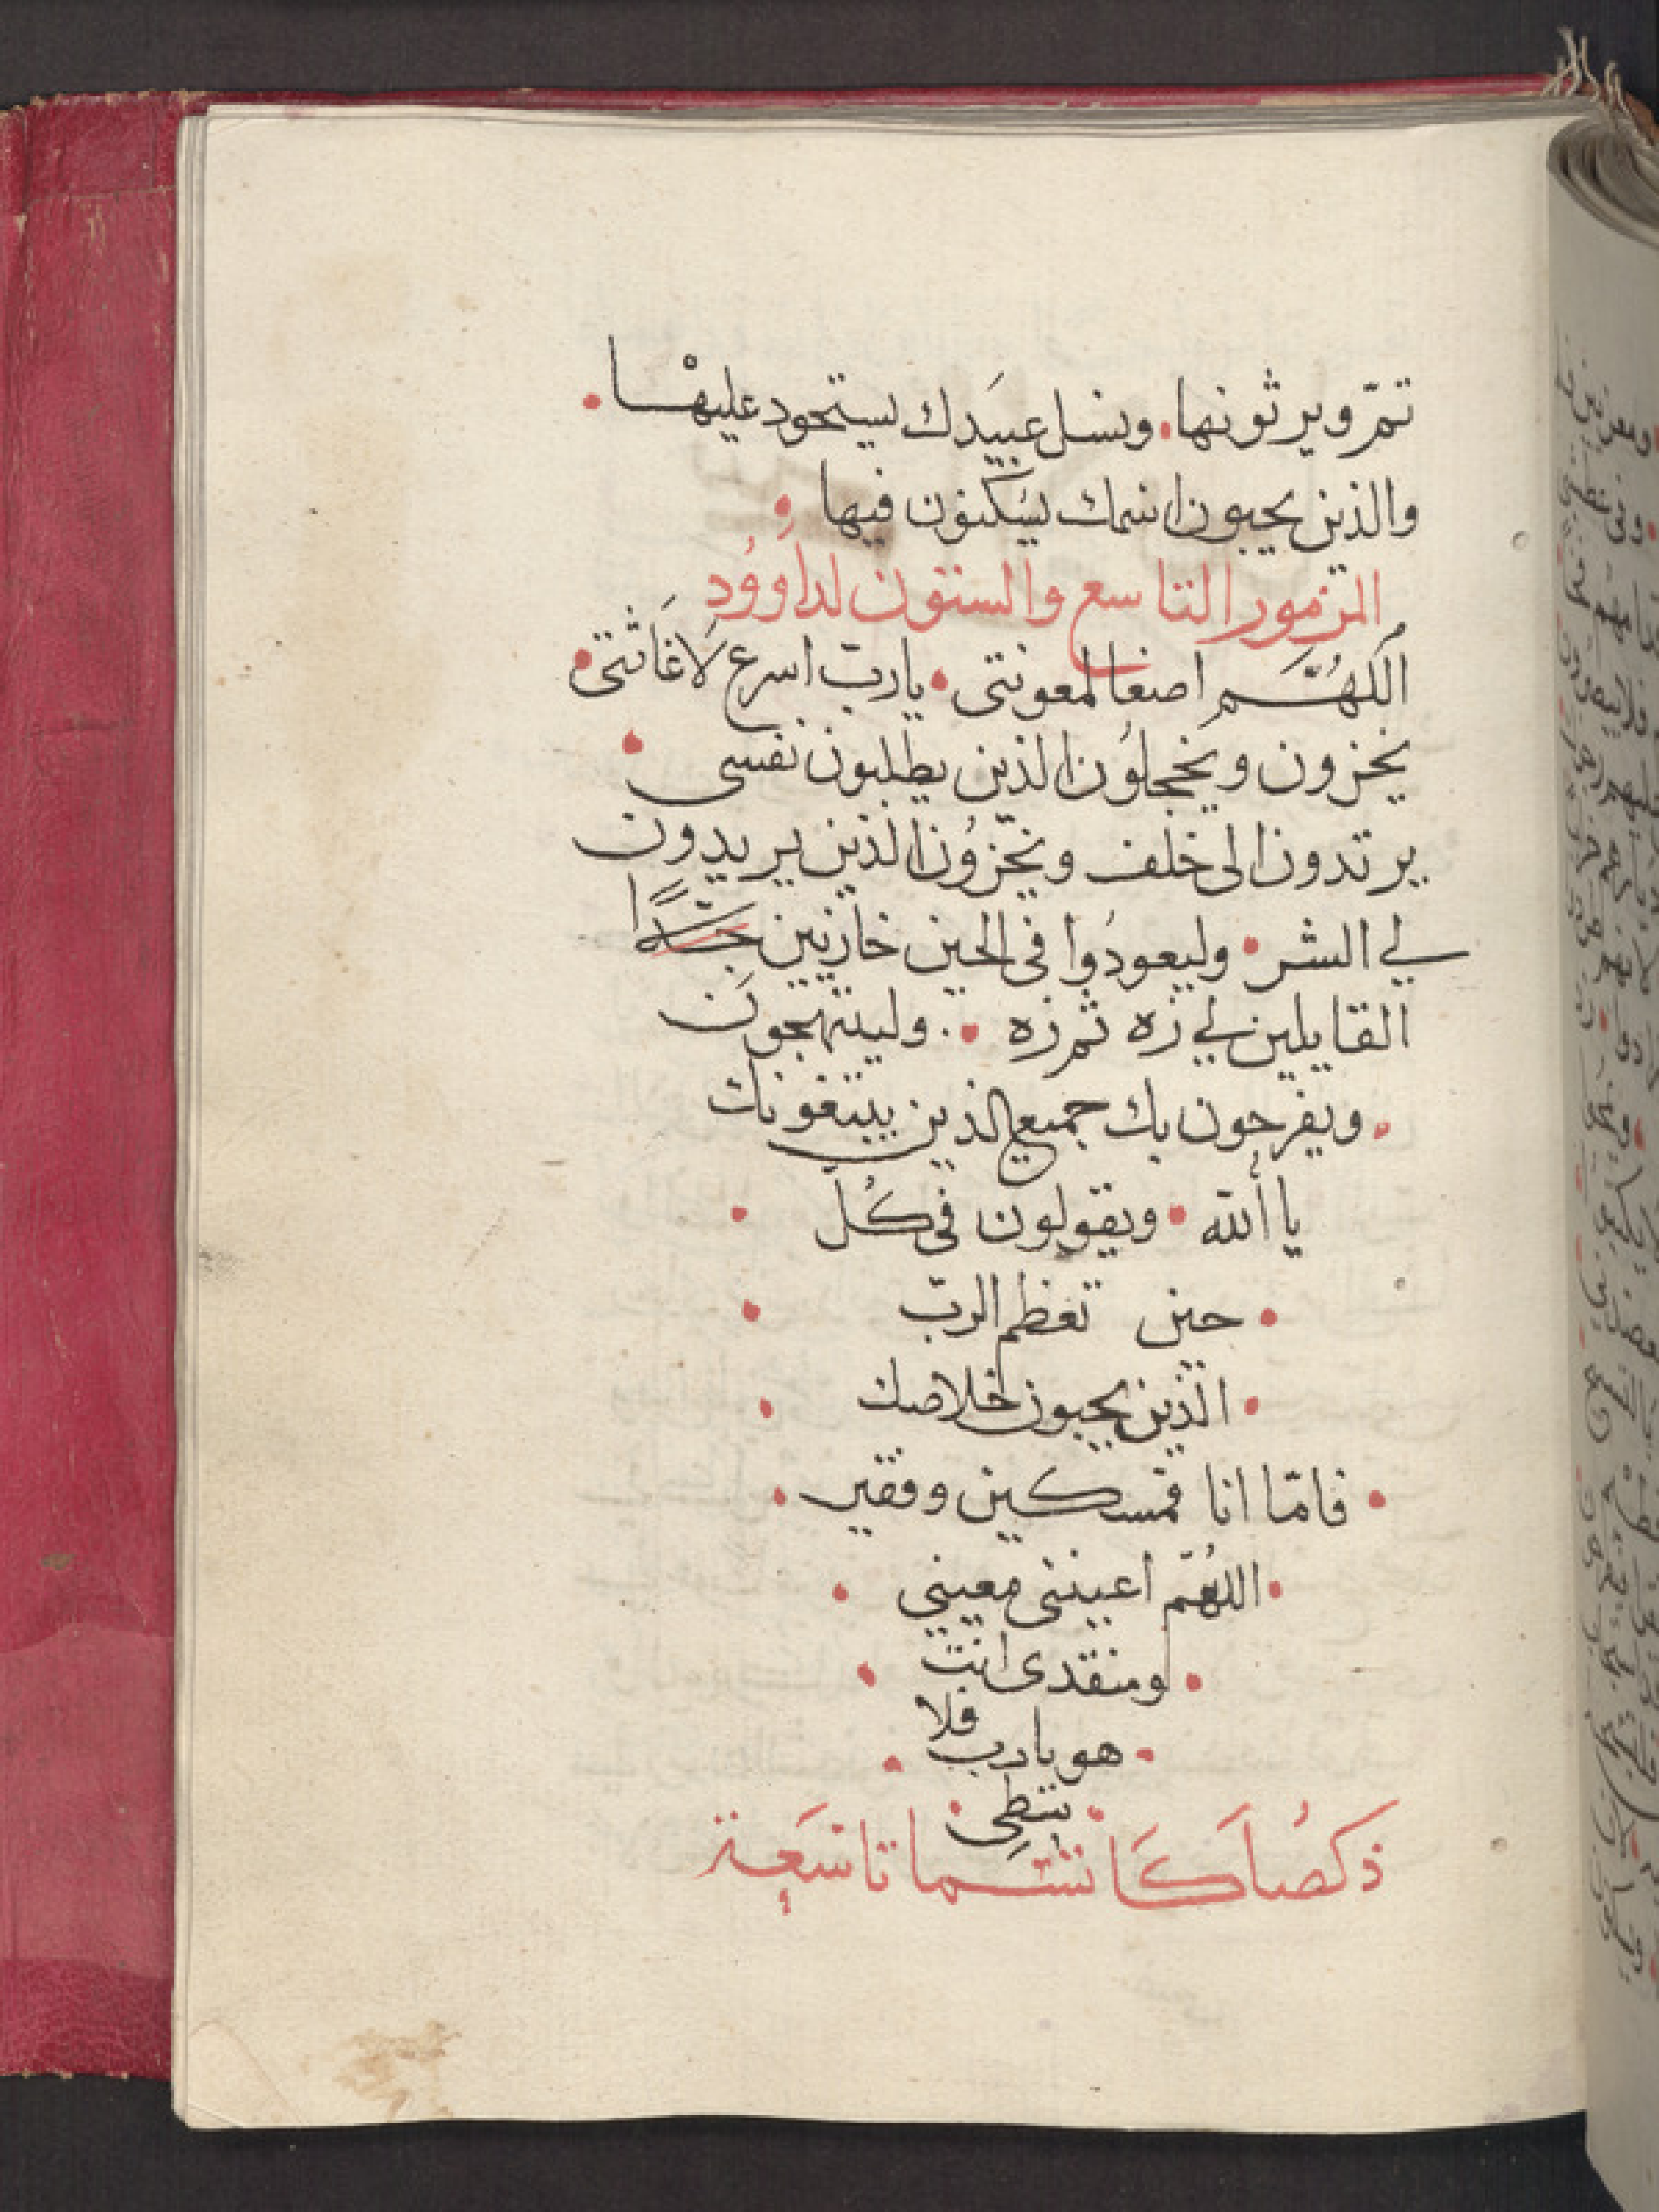 تمّ ويرثونها. ونسل عبيدك ليستحود عليهْا.
والذين يحبون اسمك يسَكنون فيها.
المزمور التاسع والستون لداوُود
اللهُمَّ اصغا لمعونتى. يا ربّ اسرع لاغَاثتى.
يخزون ويخجلوُن الذين يطلبون نفسى.
يرتدون الى خلف ويخزوُن الذين يريدون
لي الشر. وليعودُوا فى الحين خازيين جدًا
القايلين لي زه ثم زه. وليبتهجون
ويفرحون بك جميع الذين يبتغونك
يا أنته. ويقولون فى كُل.
حين تعظم الربّ.
الذين يحبون خلاصك.
فامّا انا فمسكين وفقير.
اللهُمّ اعيننى معيني.
ومنقدى انت.
هو يا رب فلا.
تبطى.
ذكصُاكَا ستما تاسَعة